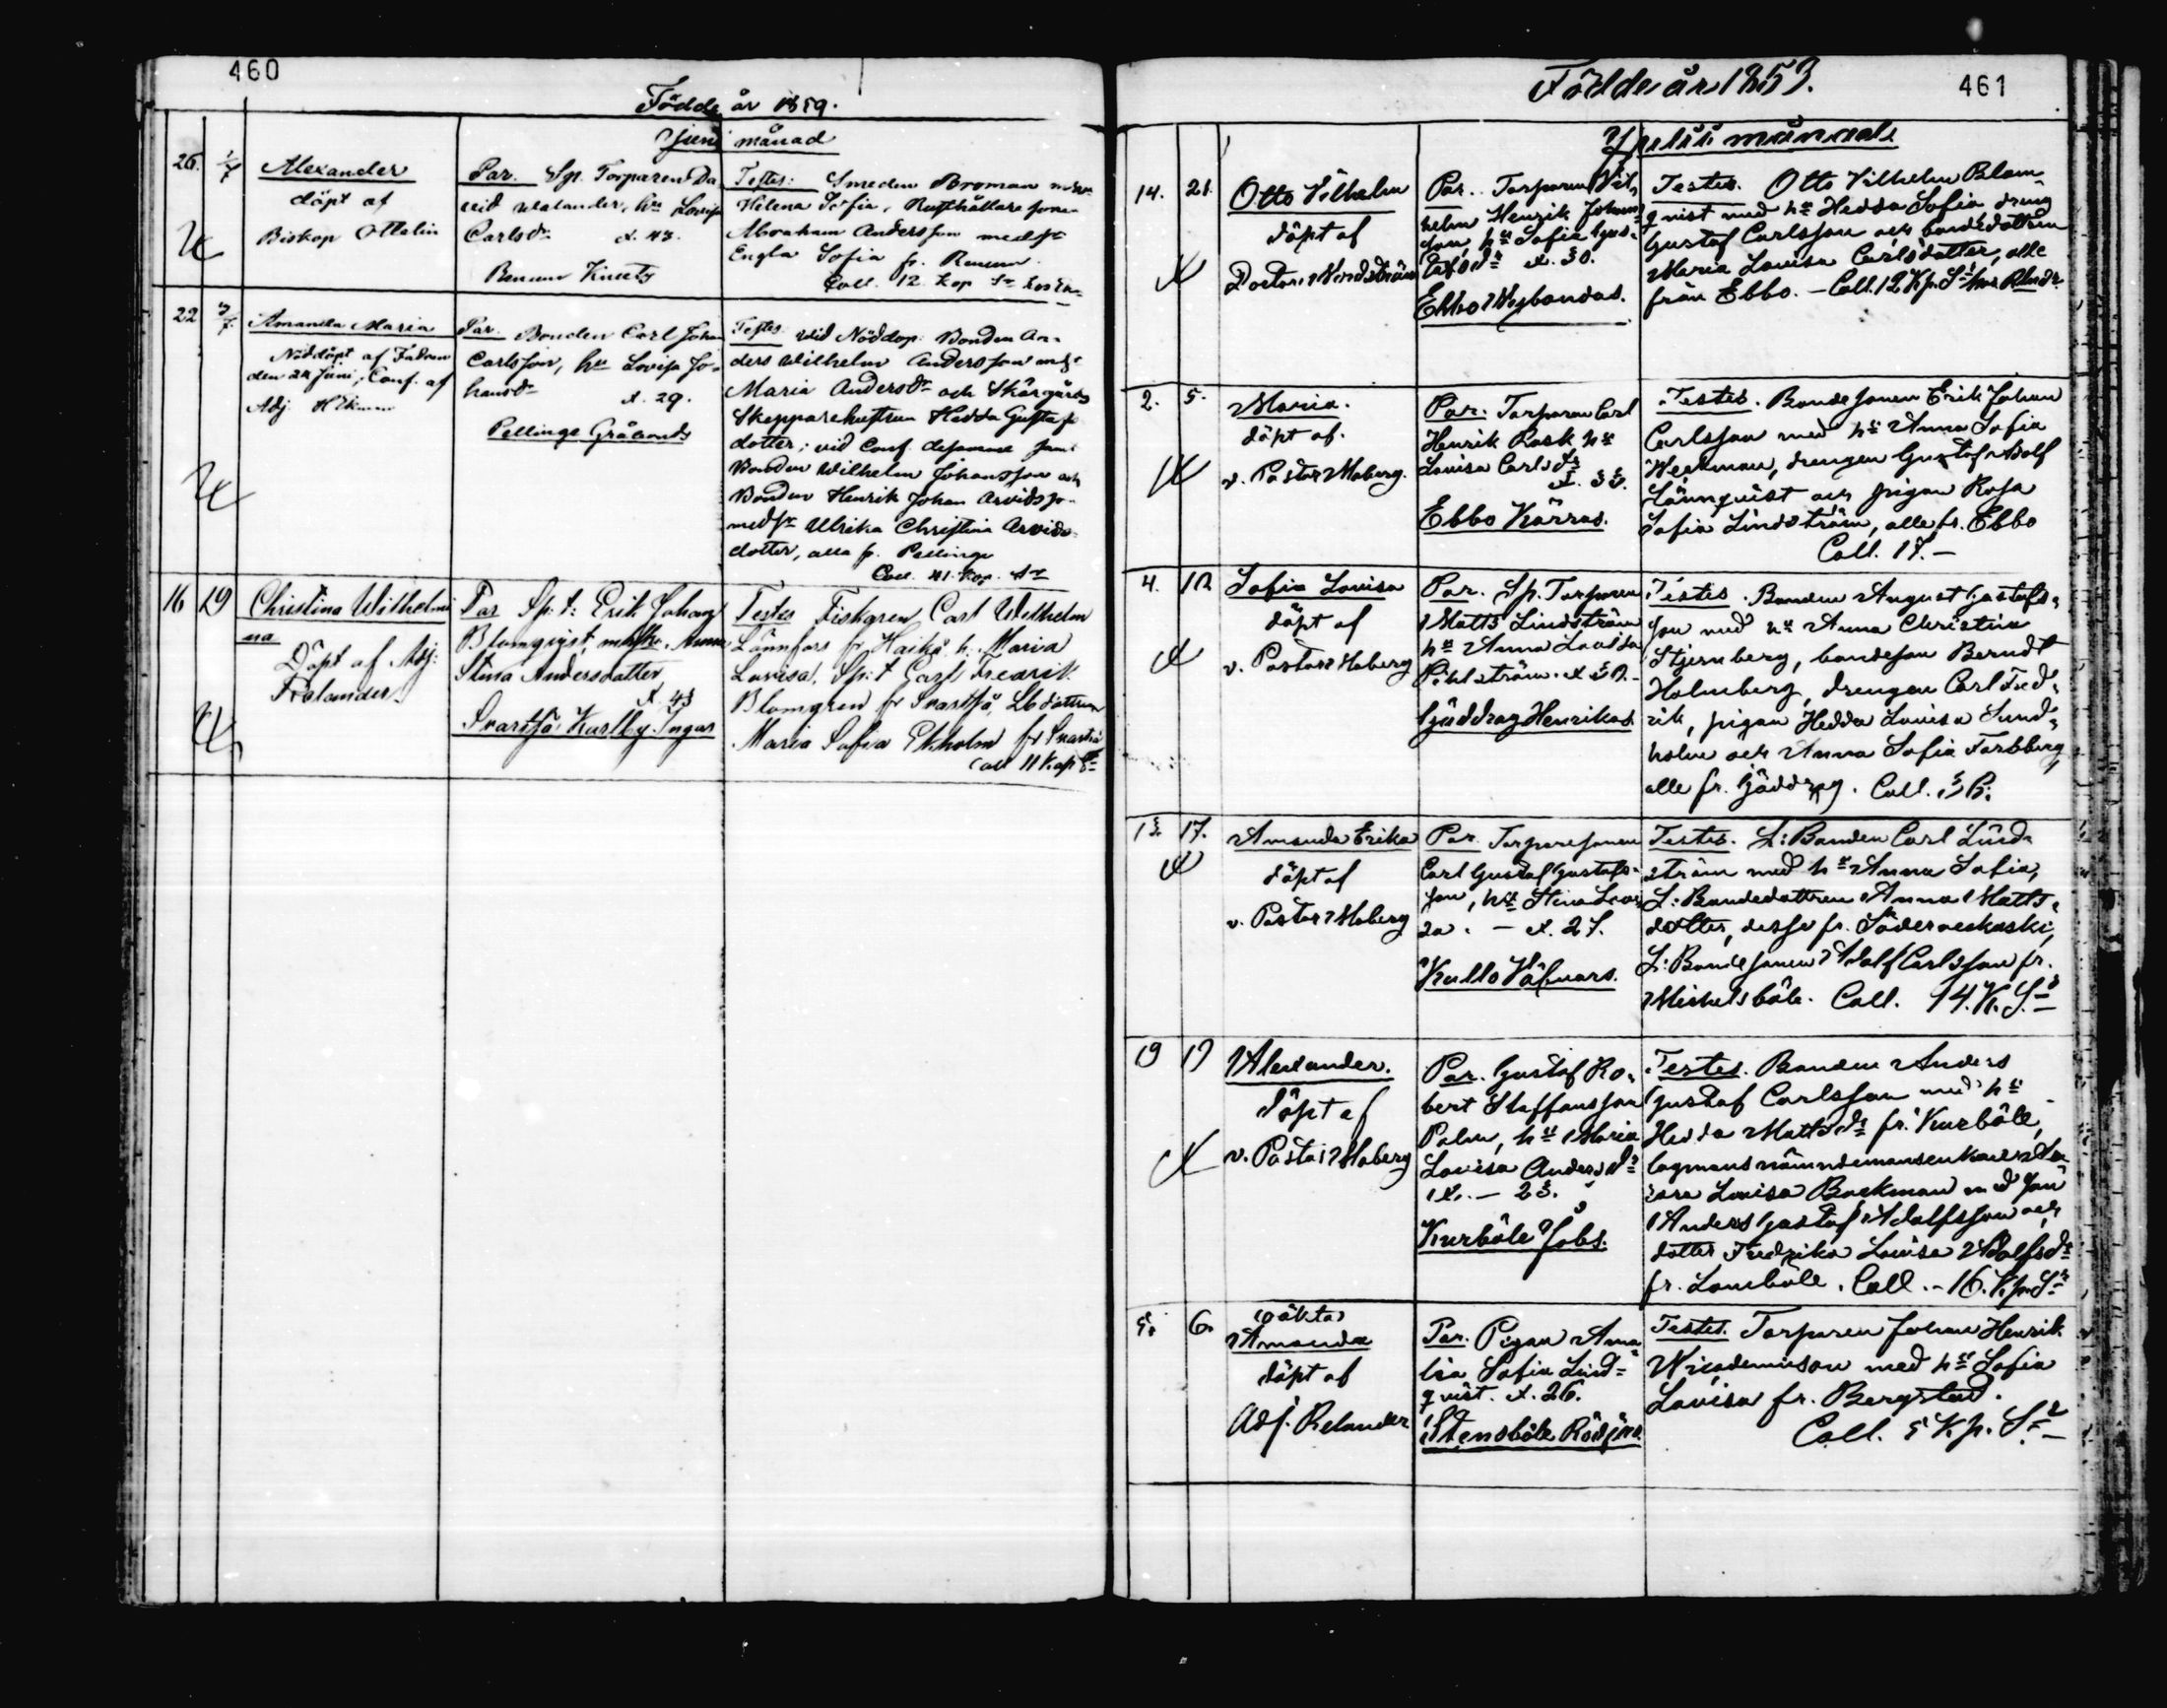 460
Födde år 1859.
Juni månad
26. 1/7
Alexander
döpt af
Biskop Ottelin
Par. Sp. Torparen Da
vid Walander, hu Lovisa
Carlsdr æ. 43.
Renum Knuts
Testes: Smeden Broman m
Helena Sofia, Rusthållare sonen
Abraham Andersson med
Engla Sofia fr. Renum
Coll. 12 kop Sr
22 3/7
Amanda Maria
Nöddöpt af Fadren
den 24 Juni; Conf. af
Adj. Hikman
Par. Bonden Carl Johan
Carlsson, hu Lovisa Jo-
hansdr æ. 29.
Pellinge Gråbonds
Testes vid Nöddop: Bonden An-
ders Wilhelm Andersson med
Maria Andersdr och Skärgårds
Skepparehustrun Hedda Gustafs
dotter; vid Conf. desamme samt
Bonden Wilhelm Johansson och
Bonden Henrik Johan Arvidsso-
med Ulrika Christina Arvids-
dotter, alla fr. Pellinge
Coll. 41. kop. Sr
16 19
Christina Wilhelmi
na
Döpt af Adj:
Relander
Par Sp: t: Erik Johan
Blomqvist, m hu. Anna
Stina Andersdotter
æ. 43
Svartså Karlby Ingas
Testes Fiskaren Carl Wilhelm
Lönnfors fr Haikå h. Maria
Lovisa, Sp: t Carl Fredrik
Blomgren fr Svartså, Lbdottren
Maria Sofia Ekholm fr Svartså
Coll 11 Kop Sr
461
Födde år 1853.
Julii månad.
14. 21.
Otto Vilhelm
döpt af
Doctor Windström
Par. Torparen Vil-
helm Henrik Johans-
son, hu Sofia Gus-
tafsdr æ. 30.
Ebbo Nybondas.
Testes. Otto Vilhelm Blom-
qvist med hu Hedda Sofia dreng
Gustaf Carlsson och bondedottren
Maria Lovisa Carlsdotter, alle
från Ebbo. – Coll. 12 Kp. Sr
2. 5.
Maria.
döpt af.
v. Pastor Moberg.
Par: Torparen Carl
Henrik Rask hu
Lovisa Carlsdr
æ. 33.
Ebbo Kärras.
Testes. Bondesonen Erik Johan
Carlsson med hu Anna Sofia
Weckman, drengen Gustaf Adolf
Lönnqvist och pigan Rosa
Sofia Lindström, alle fr. Ebbo
Coll. 17. –
4. 10
Sofia Lovisa
döpt af
v. Pastor Moberg
Par. Sp. Torparen
Matts Lindström
hu Anna Lovisa
Pihlström.
Gäddrag Henrikas.
Testes. Bonden August Gustafs-
son med hu Anna Christina
Stjernberg, bondeson Berndt
Holmberg, drengen Carl Fred-
rik, pigan Hedda Lovisa Sund-
holm och Anna Sofia Forsberg
alle fr. Gäddrag. Coll.
13. 17.
Amanda Erika
döpt af
v. Pastor Moberg
Par. Torparesonen
Carl Gustaf Gustafs-
son, hu Stina Lovi-
sa. – æ. 27.
Kullo Väfvars.
Testes. L: Bonden Carl Lind-
ström med hu Anna Sofia,
L: Bondedottren Anna Matts-
dotter, desse fr. Söderveckoski,
L: Bondesonen Adolf Carlsson fr.
Mickelsböle. Coll. 14. K. Sr
19 19
Alexander.
döpt af
v. Pastor Moberg
Par. Gustaf Ro-
bert Staffansson
Palm, hu Maria
Lovisa Andersdr
æ. – 23.
Kurböle Jobs.
Testes. Bonden Anders
Gustaf Carlsson med hu
Hedda Mattsdr fr. Kurböle,
lagmansnämndemansenkan
Lovisa Backman med son
Anders Gustaf Adolfsson och
dotter Fredrika Lovisa Adolfsdr
fr. Lomböle. Coll. – 16. Kp. Sr
5. 6.
(oäkta)
Amanda
döpt af
Adj. Relander
Par. Pigan Ama-
lia Sofia Lind-
qvist. æ. 26.
Stensböle Rödjas.
Testes. Torparen Johan Henrik
Nicodemusson med hu Sofia
Lovisa fr. Bergstad.
Coll. 5 Kp. Sr